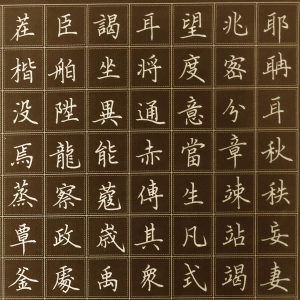 耶聃耳秋秩妄妻
兆密兮章竦站竭
望度意當生凡式
耳将通赤傳其衆
謁坐異能蔻嵗禹
臣舶陛龍察政處
茬楷没焉蒸覃釜